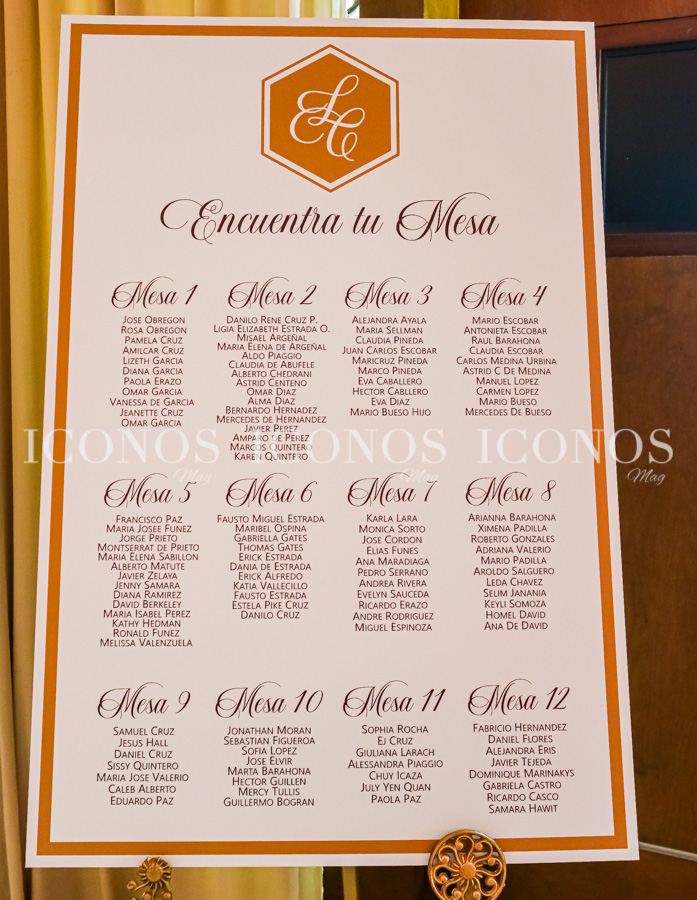 EC
Encuentra tu Mesa
Mesa 1
Jose Obregon
Rosa Obregon
Pamela Cruz
Amilcar Cruz
Lizeth Garcia
Diana Garcia
Paola Erazo
Omar Garcia
Vanessa de Garcia
Jeanette Cruz
Omar Garcia
Mesa 2
Danilo Rene Cruz P.
Ligia Elizabeth Estrada O.
Misael Argeñal
Maria Elena de Argeñal
Aldo Piaggio
Claudia de Abufele
Alberto Chedrani
Astrid Centeno
Omar Diaz
Alma Diaz
Bernardo Hernadez
Mercedes de Hernandez
Javier Perez
Amparo de Perez
Marcos Quintero
Karen Quintero
Mesa 3
Alejandra Ayala
Maria Sellman
Claudia Pineda
Juan Carlos Escobar
Maricruz Pineda
Marco Pineda
Eva Caballero
Hector Cabllero
Eva Diaz
Mario Bueso Hijo
Mesa 4
Mario Escobar
Antonieta Escobar
Raul Barahona
Claudia Escobar
Carlos Medina Urbina
Astrid C De Medina
Manuel Lopez
Carmen Lopez
Mario Bueso
Mercedes De Bueso
ICONOS ICONOS ICONOS
Mag Mag Mag
Mesa 5
Francisco Paz
Maria Josee Funez
Jorge Prieto
Montserrat de Prieto
Maria Elena Sabillon
Alberto Matute
Javier Zelaya
Jenny Samara
Diana Ramirez
David Berkeley
Maria Isabel Perez
Kathy Hedman
Ronald Funez
Melissa Valenzuela
Mesa 6
Fausto Miguel Estrada
Maribel Ospina
Gabriella Gates
Thomas Gates
Erick Estrada
Dania de Estrada
Erick Alfredo
Katia Vallecillo
Fausto Estrada
Estela Pike Cruz
Danilo Cruz
Mesa 7
Karla Lara
Monica Sorto
Jose Cordon
Elias Funes
Ana Maradiaga
Pedro Serrano
Andrea Rivera
Evelyn Sauceda
Ricardo Erazo
Andre Rodriguez
Miguel Espinoza
Mesa 8
Arianna Barahona
Ximena Padilla
Roberto Gonzales
Adriana Valerio
Mario Padilla
Aroldo Salguero
Leda Chavez
Selim Janania
Keyli Somoza
Homel David
Ana De David
Mesa 9
Samuel Cruz
Jesus Hall
Daniel Cruz
Sissy Quintero
Maria Jose Valerio
Caleb Alberto
Eduardo Paz
Mesa 10
Jonathan Moran
Sebastian Figueroa
Sofia Lopez
Jose Elvir
Marta Barahona
Hector Guillen
Mercy Tullis
Guillermo Bogran
Mesa 11
Sophia Rocha
EJ Cruz
Giuliana Larach
Alessandra Piaggio
Chuy Icaza
July Yen Quan
Paola Paz
Mesa 12
Fabricio Hernandez
Daniel Flores
Alejandra Eris
Javier Tejeda
Dominique Marinakys
Gabriela Castro
Ricardo Casco
Samara Hawit